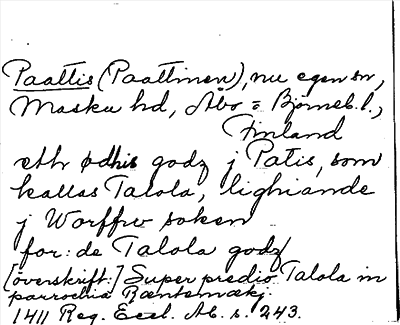 Paattis (Paattinen), nu egen sn,
Masku hd, Åbo o. Björneb. l.,
Finland
eth ødhis godz j Patis, som
kallas Talola, lighiande
j Worffru soken
for: de Talola godz
[överskrift:] Super predio Talola in
parrochia Ræntemækj
1411 Reg. Eccl. Ab. s. 243.